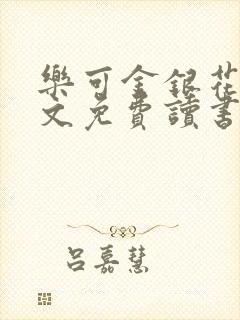 樂可金銀花
文免費讀書
呂嘉慧